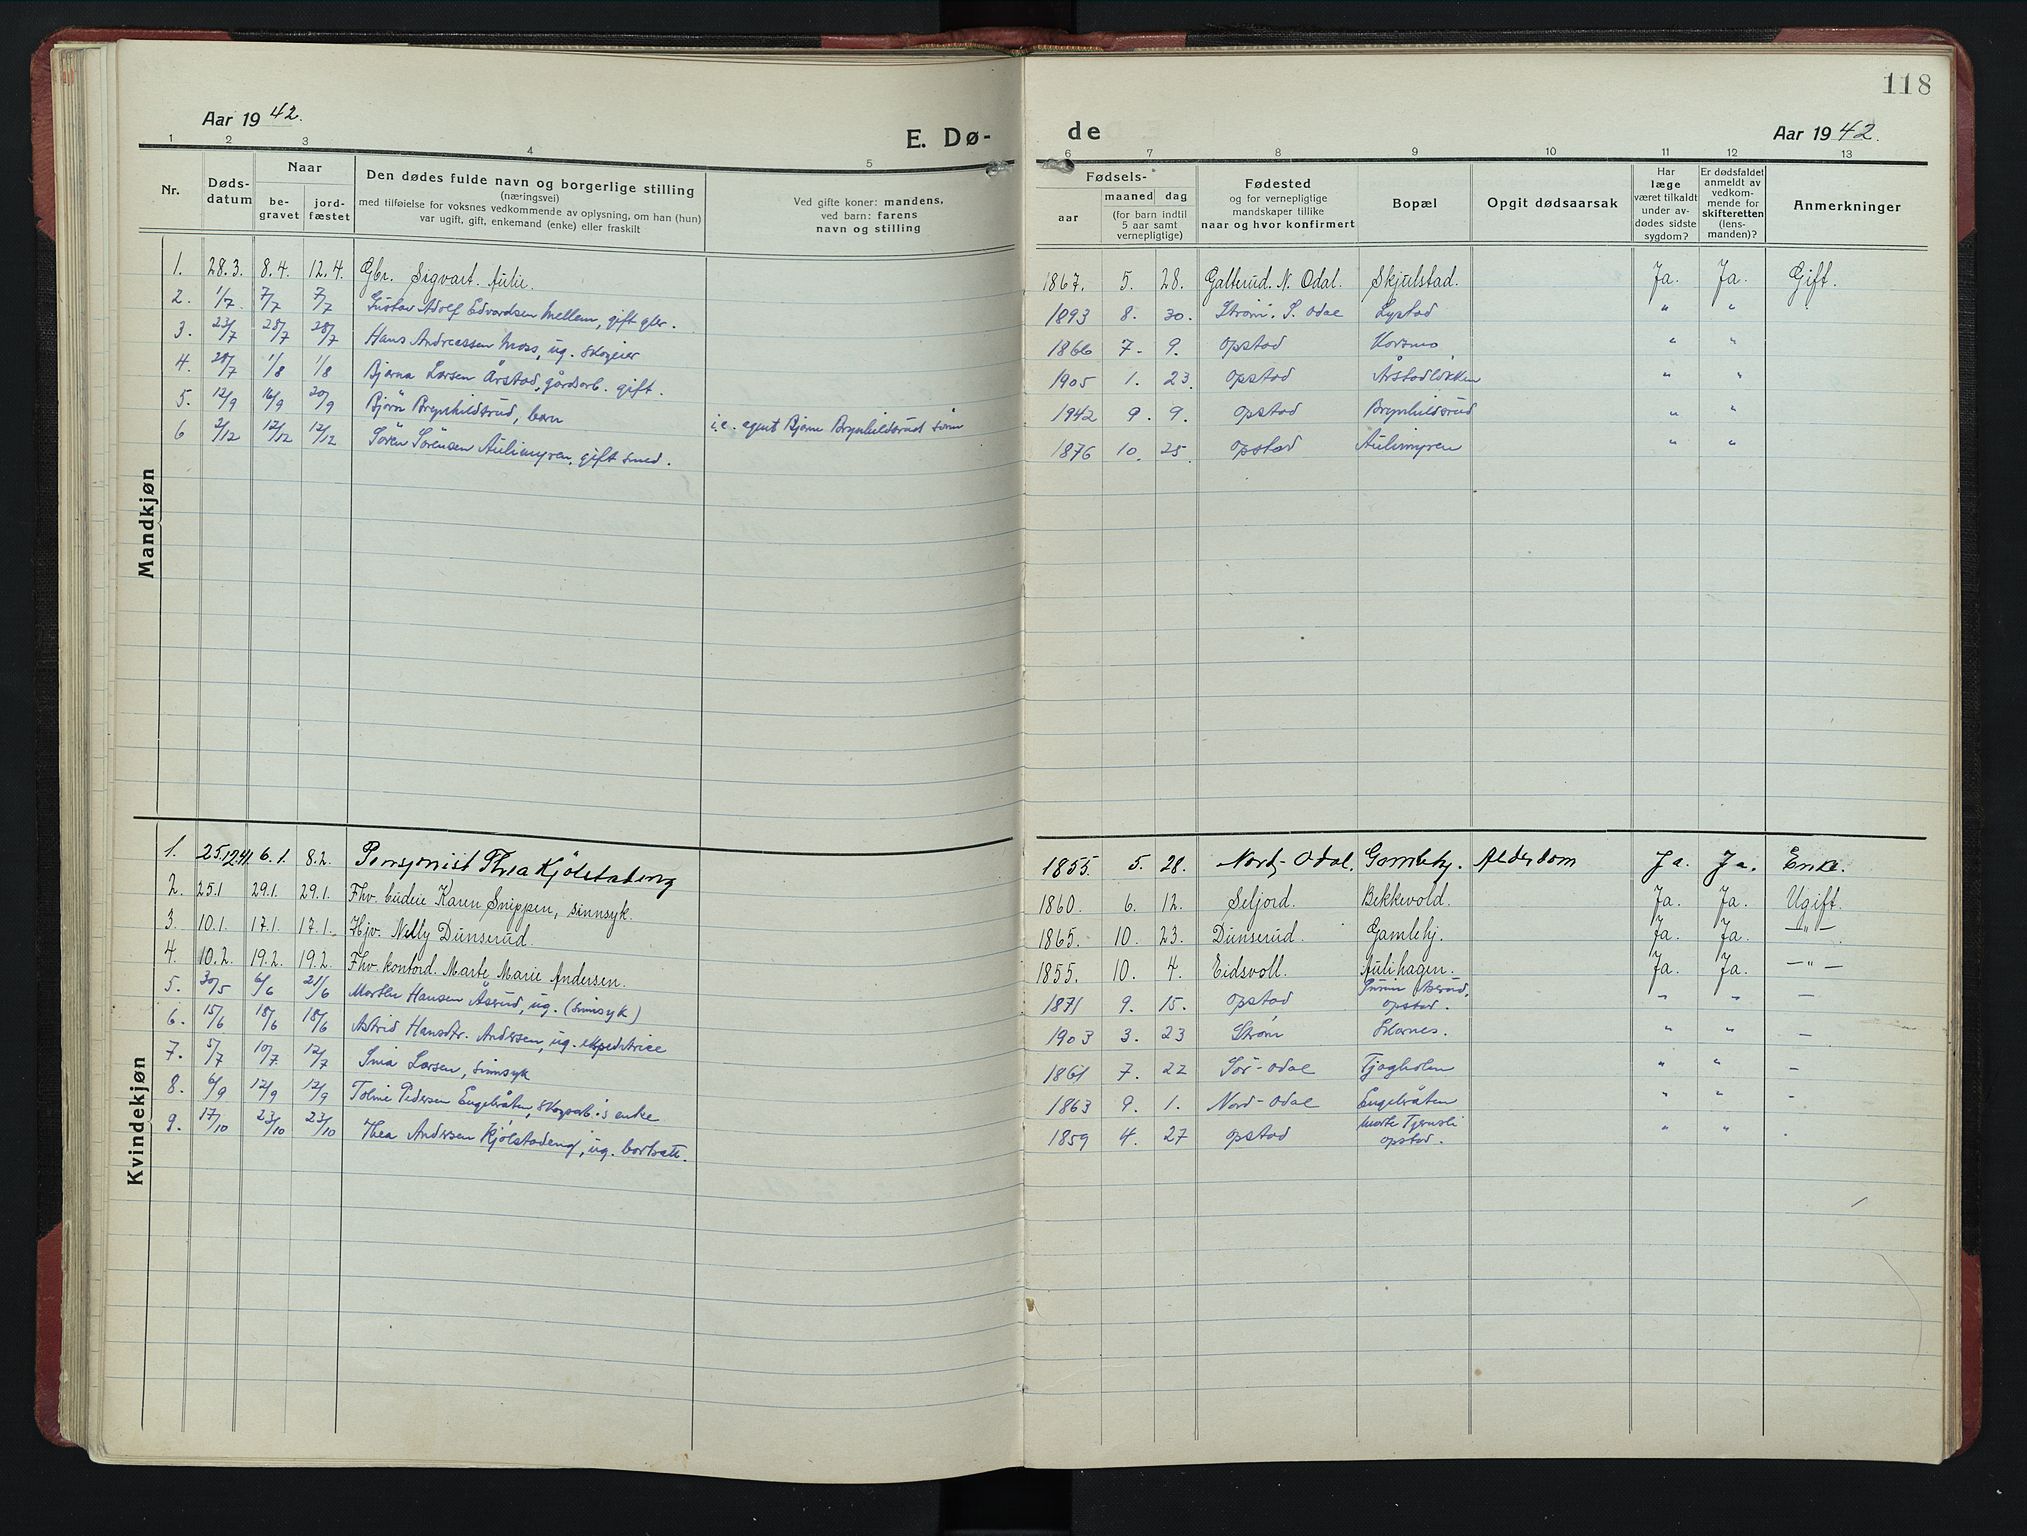 118
Aar 1942.
E. Dø-
de
Aar 1942.
1 2 3 4 5 6 7 8 9 10 11 12 13
Nr.
Døds-
datum
Naar
be-
gravet
jord-
fæstet
Den dødes fulde navn og borgerlige stilling
(næringsvei)
med tilføielse for voksnes vedkommende av oplysning, om han (hun)
var ugift, gift, enkemand (enke) eller fraskilt
Ved gifte koner: mandens,
ved barn: farens
navn og stilling
Fødsels-
aar
maaned dag
(for barn indtil
5 aar samt
vernepligtige)
Fødested
og for vernepligtige
mandskaper tillike
naar og hvor konfirmert
Bopæl
Opgit dødsaarsak
Har
læge
været tilkaldt
under av-
dødes sidste
sygdom?
Er dødsfaldet
anmeldt av
vedkom-
mende for
skifteretten
(lens-
manden)?
Anmerkninger
Mandkjøn
1. 28.3. 8.4. 12.4. Gbr. Sigvart Aulie. 1867. 5. 28. Galterud. N. Odal. Skjulstad. Ja. Ja. Gift.
2. 1/7 7/7 7/7 Gustav Adolf Edvardsen Mellem, gift gbr. 1893 8. 30. Strøm. S. Odal Lystad " "
3. 23/7 28/7 28/7 Hans Andreassen Moss, ug. skogeier 1866 7. 9. Opstad Korsmo " "
4. 28/7 1/8 1/8 Bjarne Larsen Årstad, gårdsarb. gift. 1905 1. 23. Opstad Årstadløkken " "
5. 12/9 16/9 20/9 Bjørn Brynhildsrud, barn i.e. agent Bjarne Brynhildsrud sønn 1942 9. 9. Opstad Brynhildsrud " "
6 2/12 12/12 12/12 Søren Sørensen Aulimyren, gift smed. 1876 10. 25. Opstad Aulimyren " "
Kvindekjøn
1. 25.12.41. 6.1. 8.2. Pensjonist Thea Kjølstadeng 1855. 5. 28. Nord-Odal. Gamlehj. Alderdom Ja. Ja. Enke.
2. 25.1 29.1. 29.1. Fhv. budeie Karen Snippen, sinnsyk. 1860. 6. 12. Seljord. Bekkevold. Ja. Ja. Ugift.
3. 10.1. 17.1. 17.1. Hjv. Nelly Dunserud. 1865. 10. 23. Dunserud. Gamlehj. Ja. Ja. —"—
4. 10.2. 19.2. 19.2. Fhv. kontord. Marte Marie Andersen. 1855. 10. 4. Eidsvoll. Aulihagen. Ja. Ja. —"—
5. 30/5 6/6 21/6 Marthe Hansen Åsrud, ug. (sinnsyk) 1871 9. 15. Opstad Åsrud, Opstad. " " —
6. 15/6 18/6 18/6 Astrid Hansdtr. Andersen, ug. ekspeditrice 1903 3. 23 Strøm Skarnes. " " —
7. 5/7 10/7 12/7 Larsen, sinnsyk 1861 7. 22 Sør-Odal Tjagholen " " —
8. 6/9 12/9 12/9 Toline Pedersen Engelråten, skogsarb.'s enke 1863 9. 1. Nord-Odal Engelråten " " -
9. 17/10 23/10 23/10 Thea Andersen Kjølstadeng, ug. bortsatt. 1859 4. 27 Opstad Marte Tjernsli Opstad. " "